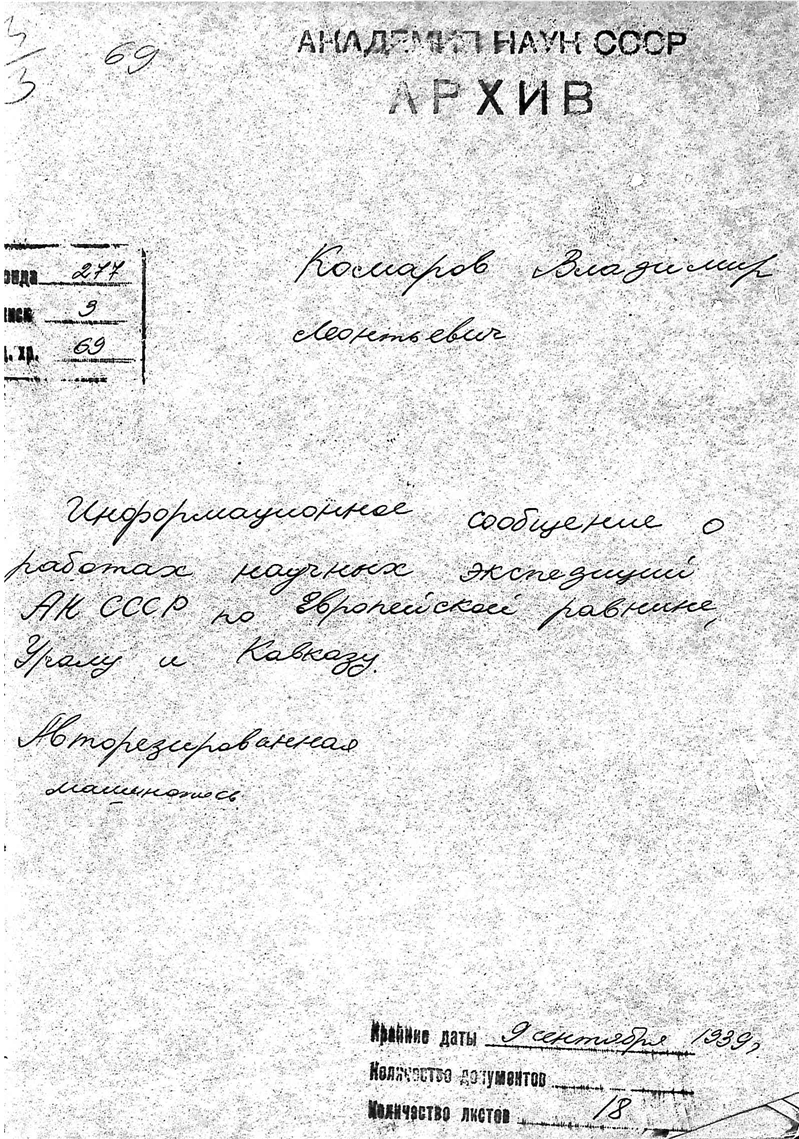 3
69
АКАДЕМИЯ НАУК СССР
3
АРХИВ
онда 277
иси 3
д. хр. 69
Комаров Владимир
Леонтьевич
Информационное сообщение о
работах научных экспедиций
АН СССР по Европейской равнине,
Уралу и Кавказу.
Авторезированная
машинопись
Крайние даты 9 сентября 1939г
Количество документов
Количество листов 18